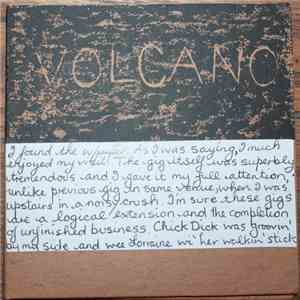 VOLCANO
I found the As I was saying, I much
enjoyed my visit. The gig itself was superbly
tremendous and I gave it my full attention,
unlike previous gig in same venue, when I was
upstairs in a noisy crush. I'm sure these gigs
are a logical extension and the completion
of unfinished business. Chick Dick was groovin'
by my side and wee Lorraine wi' her walkin stick